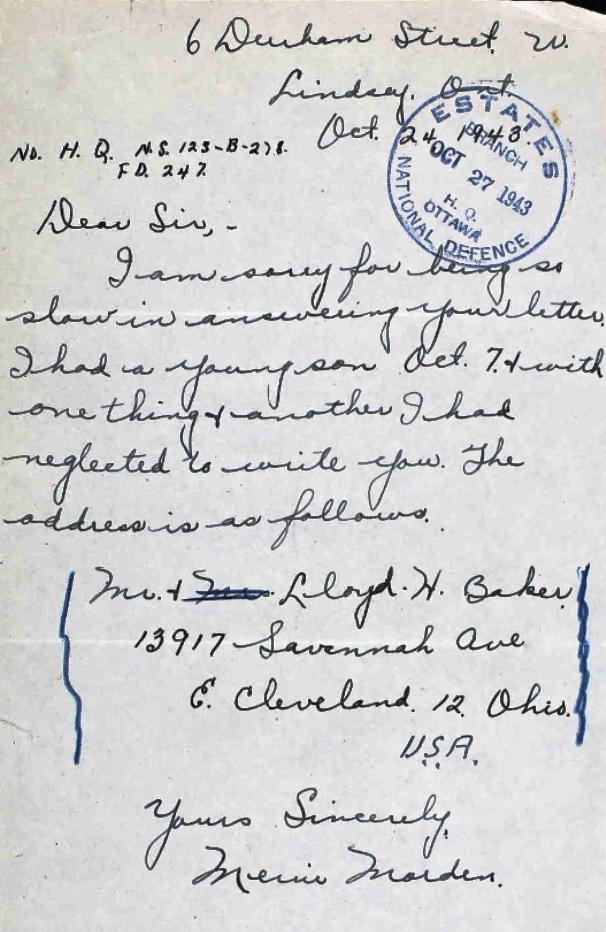 6 Durham Street. W.
Lindsay, Ont.
Oct. 24, 1943.
No. H. Q. N.S. 123-B-278.
F D. 247.
ESTATES
BRANCH
OCT 27 1943
H. Q.
OTTAWA
NATIONAL DEFENCE
Dear Sir, -
I am sorry for being so
slow in answering your letter.
I had a young son Oct. 7. & with
one thing & another I had
neglected to write you. The
address is as follows.
Mr. & Lloyd. H. Baker
13917 Savannah Ave
E. Cleveland. 12. Ohio.
U.S.A.
Yours Sincerely,
Morden.